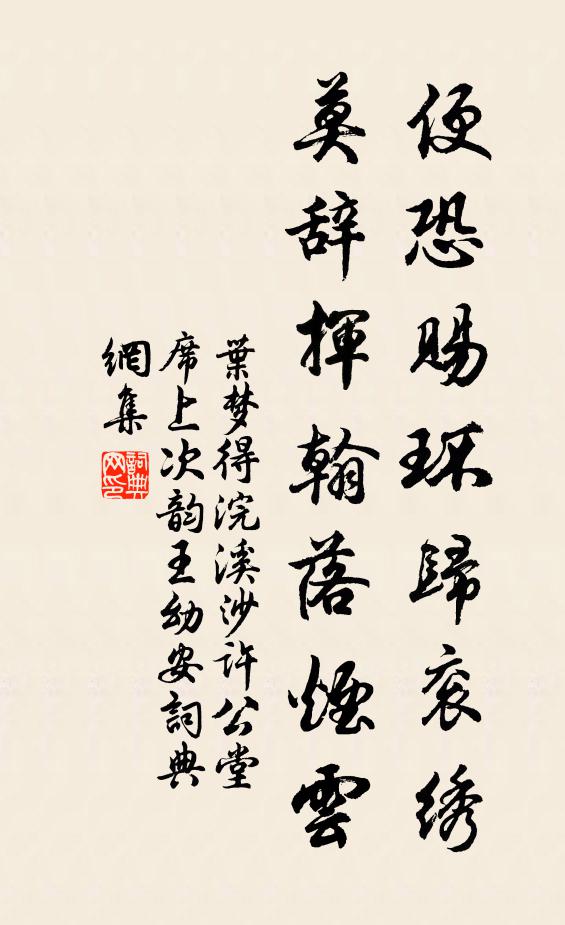 便恐賜环歸衮绣
莫辞揮翰落煙雲
葉梦得浣溪沙许公堂
席上次韵王幼安詞典
網集
詞典
网印